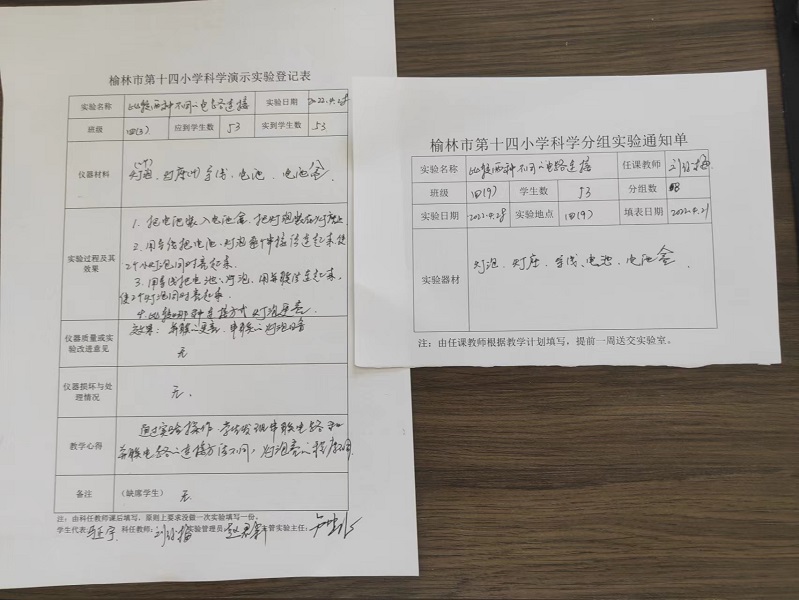 榆林市第十四小学科学演示实验登记表
实验名称 比较两种不同的电路连接 实验日期 2022.4.28
班级 四(3) 应到学生数 53 实到学生数 53
仪器材料 灯泡、灯座、导线、电池、电池盒
实验过程及其效果
1. 把电池装入电池盒,把灯泡装在灯座上
2. 用导线把电池、灯泡串接法连起来,使
2个小灯泡同时亮起来。
3. 用导线把电池、灯泡,用并联法连起来,
使2个灯泡同时亮起来。
4. 比较哪种连接方式灯泡更亮
效果:并联的更亮,串联的灯泡
仪器质量或实验改进意见 无
仪器损坏与处理情况 无.
教学心得
通过实验操作,学生发现串联电路和
并联电路的连接方法不同,灯泡亮的程度不同
备注 (缺席学生) 无
注:由科任教师课后填写,原则上要求没做一次实验填写一份。
学生代表: 科任教师: 实验管理员: 主管实验主任:
榆林市第十四小学科学分组实验通知单
实验名称 比较两种不同的电路连接 任课教师
班级 四(9) 学生数 53 分组数
实验日期 2022.4.28 实验地点 四(9) 填表日期 2022.4.21
实验器材 灯泡、灯座、导线、电池、电池盒
注:由任课教师根据教学计划填写,提前一周送交实验室。